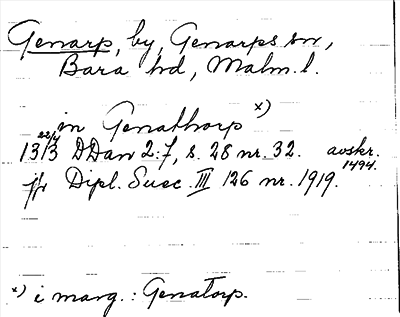 Genarp, by, Genarps sn,
Bara hd, Malm. l.
in Genathorp x)
13 22/4 13 DDan 2:7, s. 28 nr. 32. avskr. 1494.
jfr Dipl. Suec. III 126 nr. 1919.
x) i marg.: Genatorp.